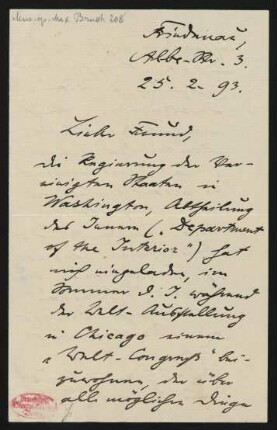 Mus. ep. Max Bruch 208
Friedenau,
Albe-Str. 3.
25. 2. 93.
Lieber Freund,
die Regierung der Ver-
einigten Staaten in
Washington, Abtheilung
des Innern („Department
of the Interior") hat
mich eingeladen, im
Sommer d. J. während
der Welt-Ausstellung
in Chicago einem
„Welt-Congreß" bei-
zuwohnen, der über
alle möglichen Dinge